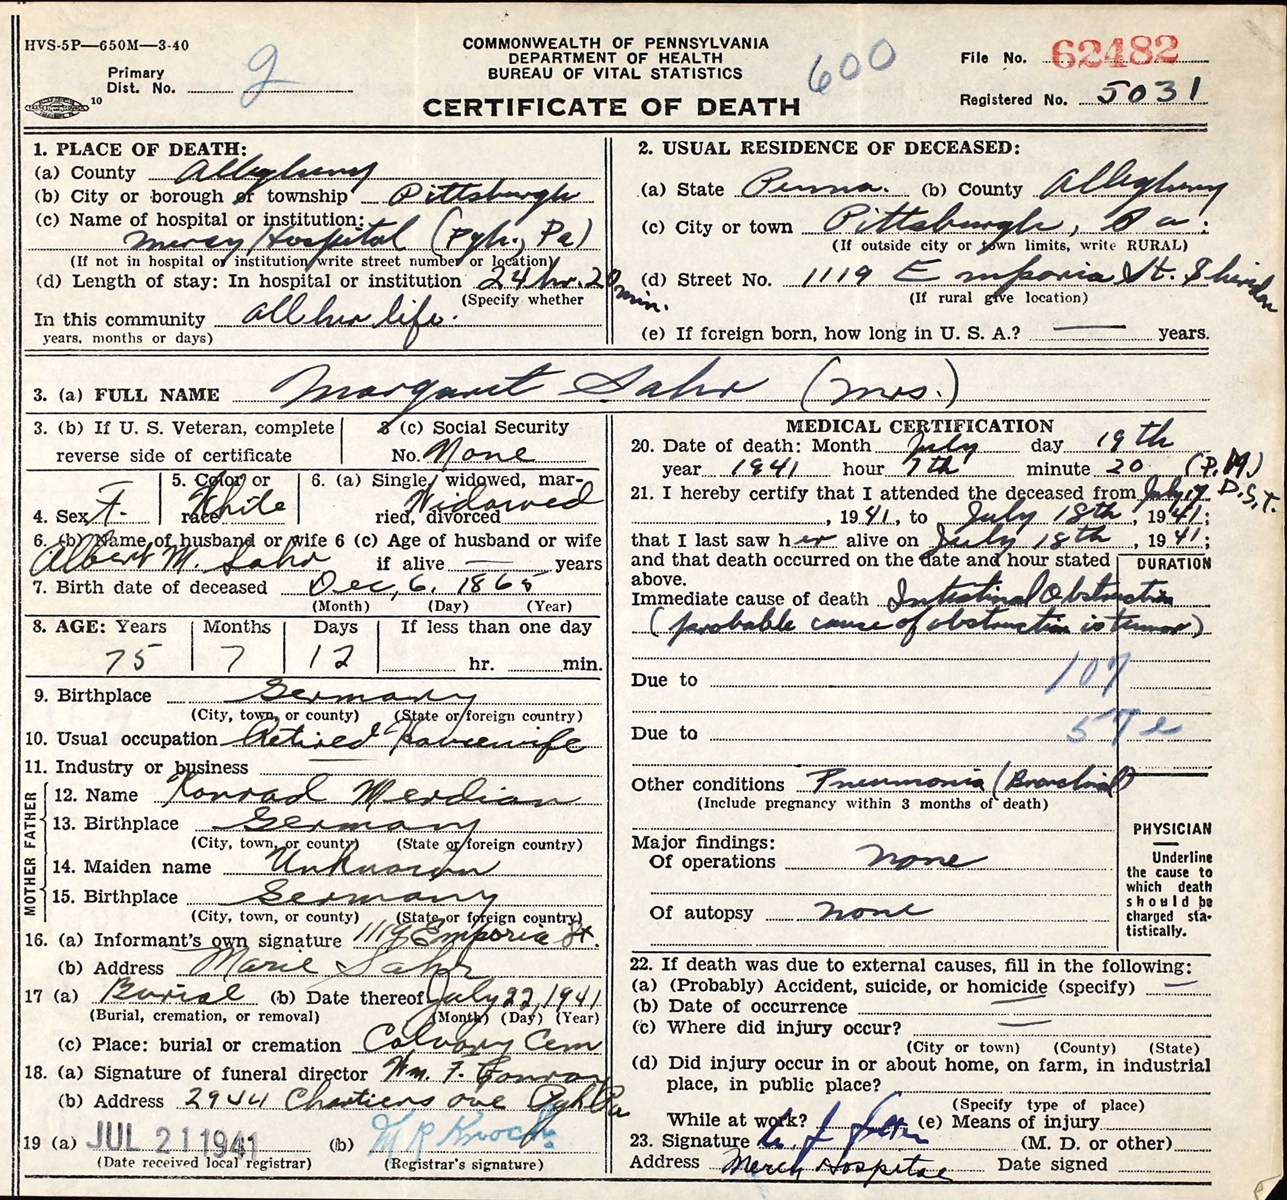 HVS-5P—650M—3-40
COMMONWEALTH OF PENNSYLVANIA
DEPARTMENT OF HEALTH
BUREAU OF VITAL STATISTICS
CERTIFICATE OF DEATH
600
Primary
Dist. No. 2
10
File No. 62482
Registered No. 5031
1. PLACE OF DEATH:
(a) County Allegheny
(b) City or borough or township Pittsburgh
(c) Name of hospital or institution:
Mercy Hospital (Pgh., Pa)
(If not in hospital or institution write street number or location)
(d) Length of stay: In hospital or institution 24 hr. 20 min.
(Specify whether
In this community all her life.
years, months or days)
2. USUAL RESIDENCE OF DECEASED:
(a) State Penna. (b) County Allegheny
(c) City or town Pittsburgh, Pa.
(If outside city or town limits, write RURAL)
(d) Street No. 1119 Emporia St. Sheridan
(If rural give location)
(e) If foreign born, how long in U. S. A.? — years.
3. (a) FULL NAME Margaret Sahr (Mrs.)
3. (b) If U. S. Veteran, complete
reverse side of certificate
3 (c) Social Security
No. None
4. Sex F.
5. Color or
race White
6. (a) Single, widowed, mar-
ried, divorced Widowed
6. (b) Name of husband or wife Albert M. Sahr
6 (c) Age of husband or wife
if alive — years
7. Birth date of deceased Dec. 6, 1865
(Month) (Day) (Year)
8. AGE: Years Months Days If less than one day
75 7 12 hr. min.
9. Birthplace Germany
(City, town, or county) (State or foreign country)
10. Usual occupation Retired Housewife
11. Industry or business
FATHER
12. Name Konrad Merdian
13. Birthplace Germany
(City, town, or county) (State or foreign country)
MOTHER
14. Maiden name Unknown
15. Birthplace Germany
(City, town, or county) (State or foreign country)
16. (a) Informant's own signature 1119 Emporia St.
(b) Address Marie Sahr
17 (a) Burial (b) Date thereof July 22, 1941
(Burial, cremation, or removal) (Month) (Day) (Year)
(c) Place: burial or cremation Calvary Cem
18. (a) Signature of funeral director Wm. F. Conroy
(b) Address 2944 Chartiers ave Pgh Pa
19 (a) JUL 21 1941 (b)
(Date received local registrar) (Registrar's signature)
MEDICAL CERTIFICATION
20. Date of death: Month July day 19th
year 1941 hour 7th minute 20 (P.M) D.S.T.
21. I hereby certify that I attended the deceased from July 17
, 1941, to July 18th, 1941;
that I last saw her alive on July 18th, 1941;
and that death occurred on the date and hour stated
above.
DURATION
Immediate cause of death Intestinal Obstruction
(probable cause of obstruction is tumor)
Due to 107
Due to 57e
Other conditions Pneumonia (Bronchial)
(Include pregnancy within 3 months of death)
Major findings:
Of operations none
Of autopsy none
PHYSICIAN
Underline
the cause to
which death
should be
charged sta-
tistically.
22. If death was due to external causes, fill in the following:
(a) (Probably) Accident, suicide, or homicide (specify) —
(b) Date of occurrence
(c) Where did injury occur? —
(City or town) (County) (State)
(d) Did injury occur in or about home, on farm, in industrial
place, in public place?
(Specify type of place)
While at work? (e) Means of injury
23. Signature (M. D. or other)
Address Mercy Hospital Date signed